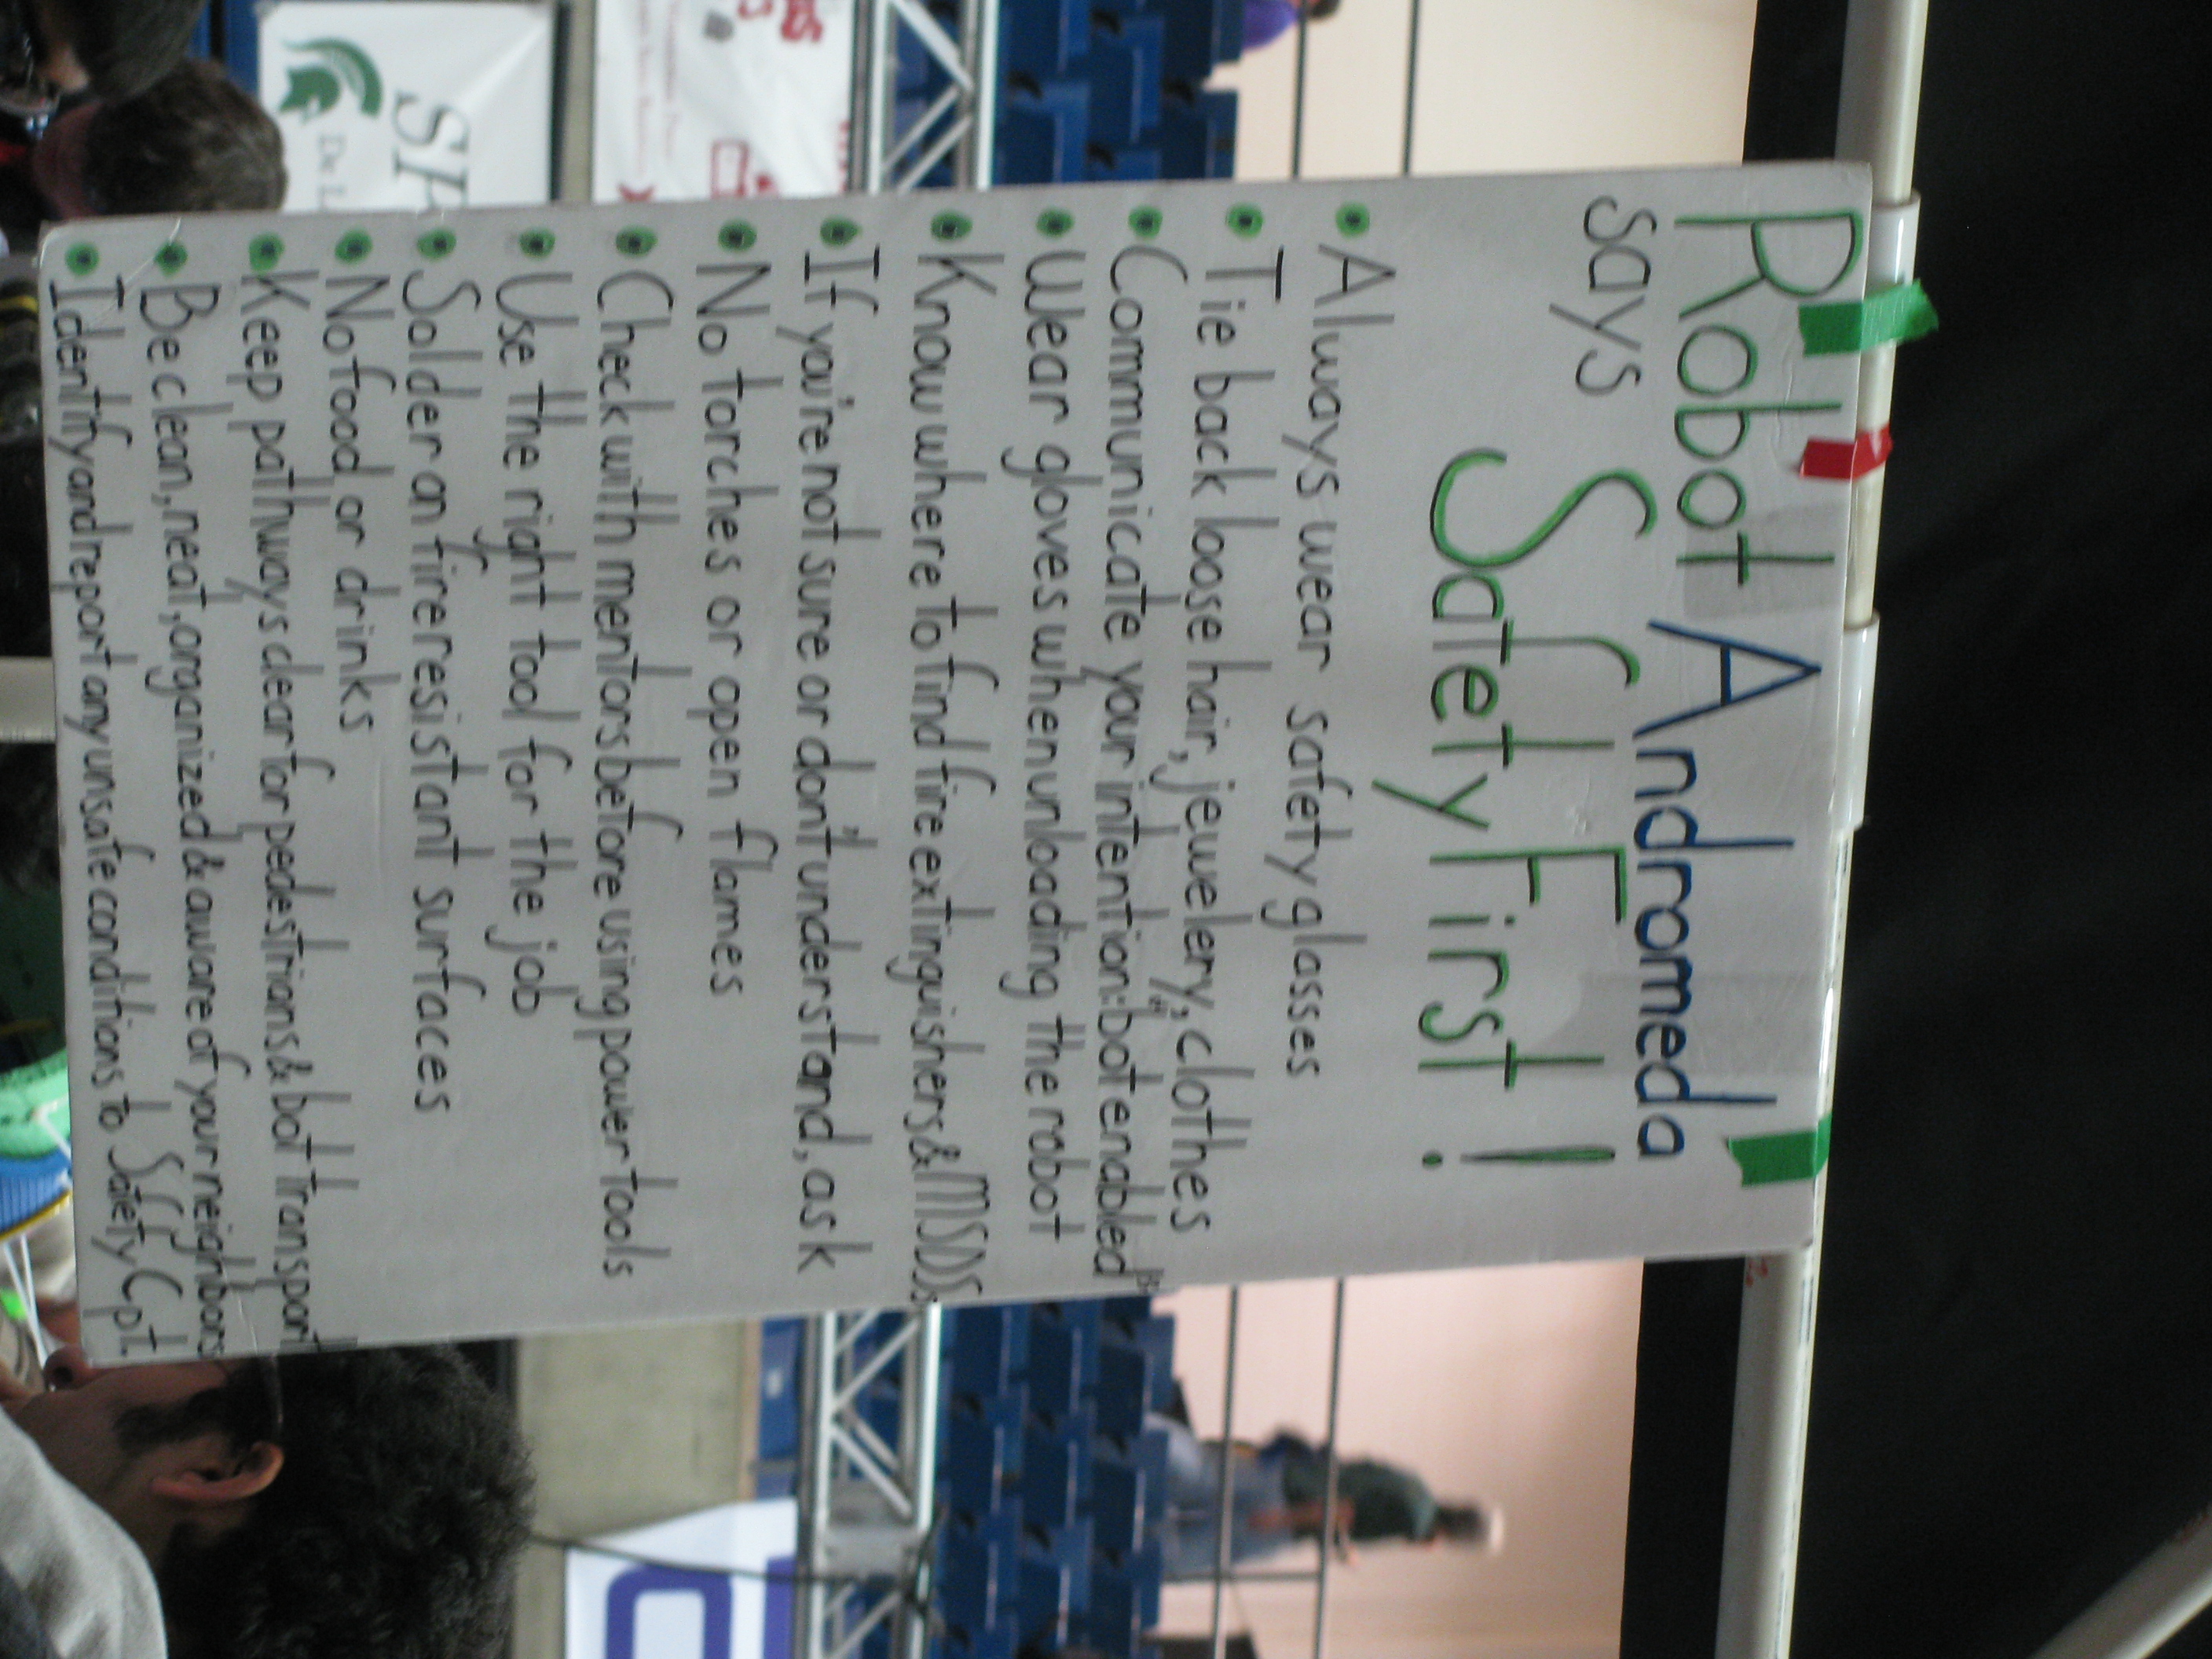 Robot Andromeda
says Safety First!
• Always wear safety glasses
• Tie back loose hair, jewelery, clothes
• Communicate your intention: "bot enabled"
• Wear gloves when unloading the robot
• Know where to find fire extinguishers & MSDSs
• If you're not sure or don't understand, ask
• No torches or open flames
• Check with mentors before using power tools
• Use the right tool for the job
• Solder on fire resistant surfaces
• No food or drinks
• Keep pathways clear for pedestrians & bot transport
• Be clean, neat, organized & aware of your neighbors
• Identify and report any unsafe conditions to Safety Cpt.
SP
De L